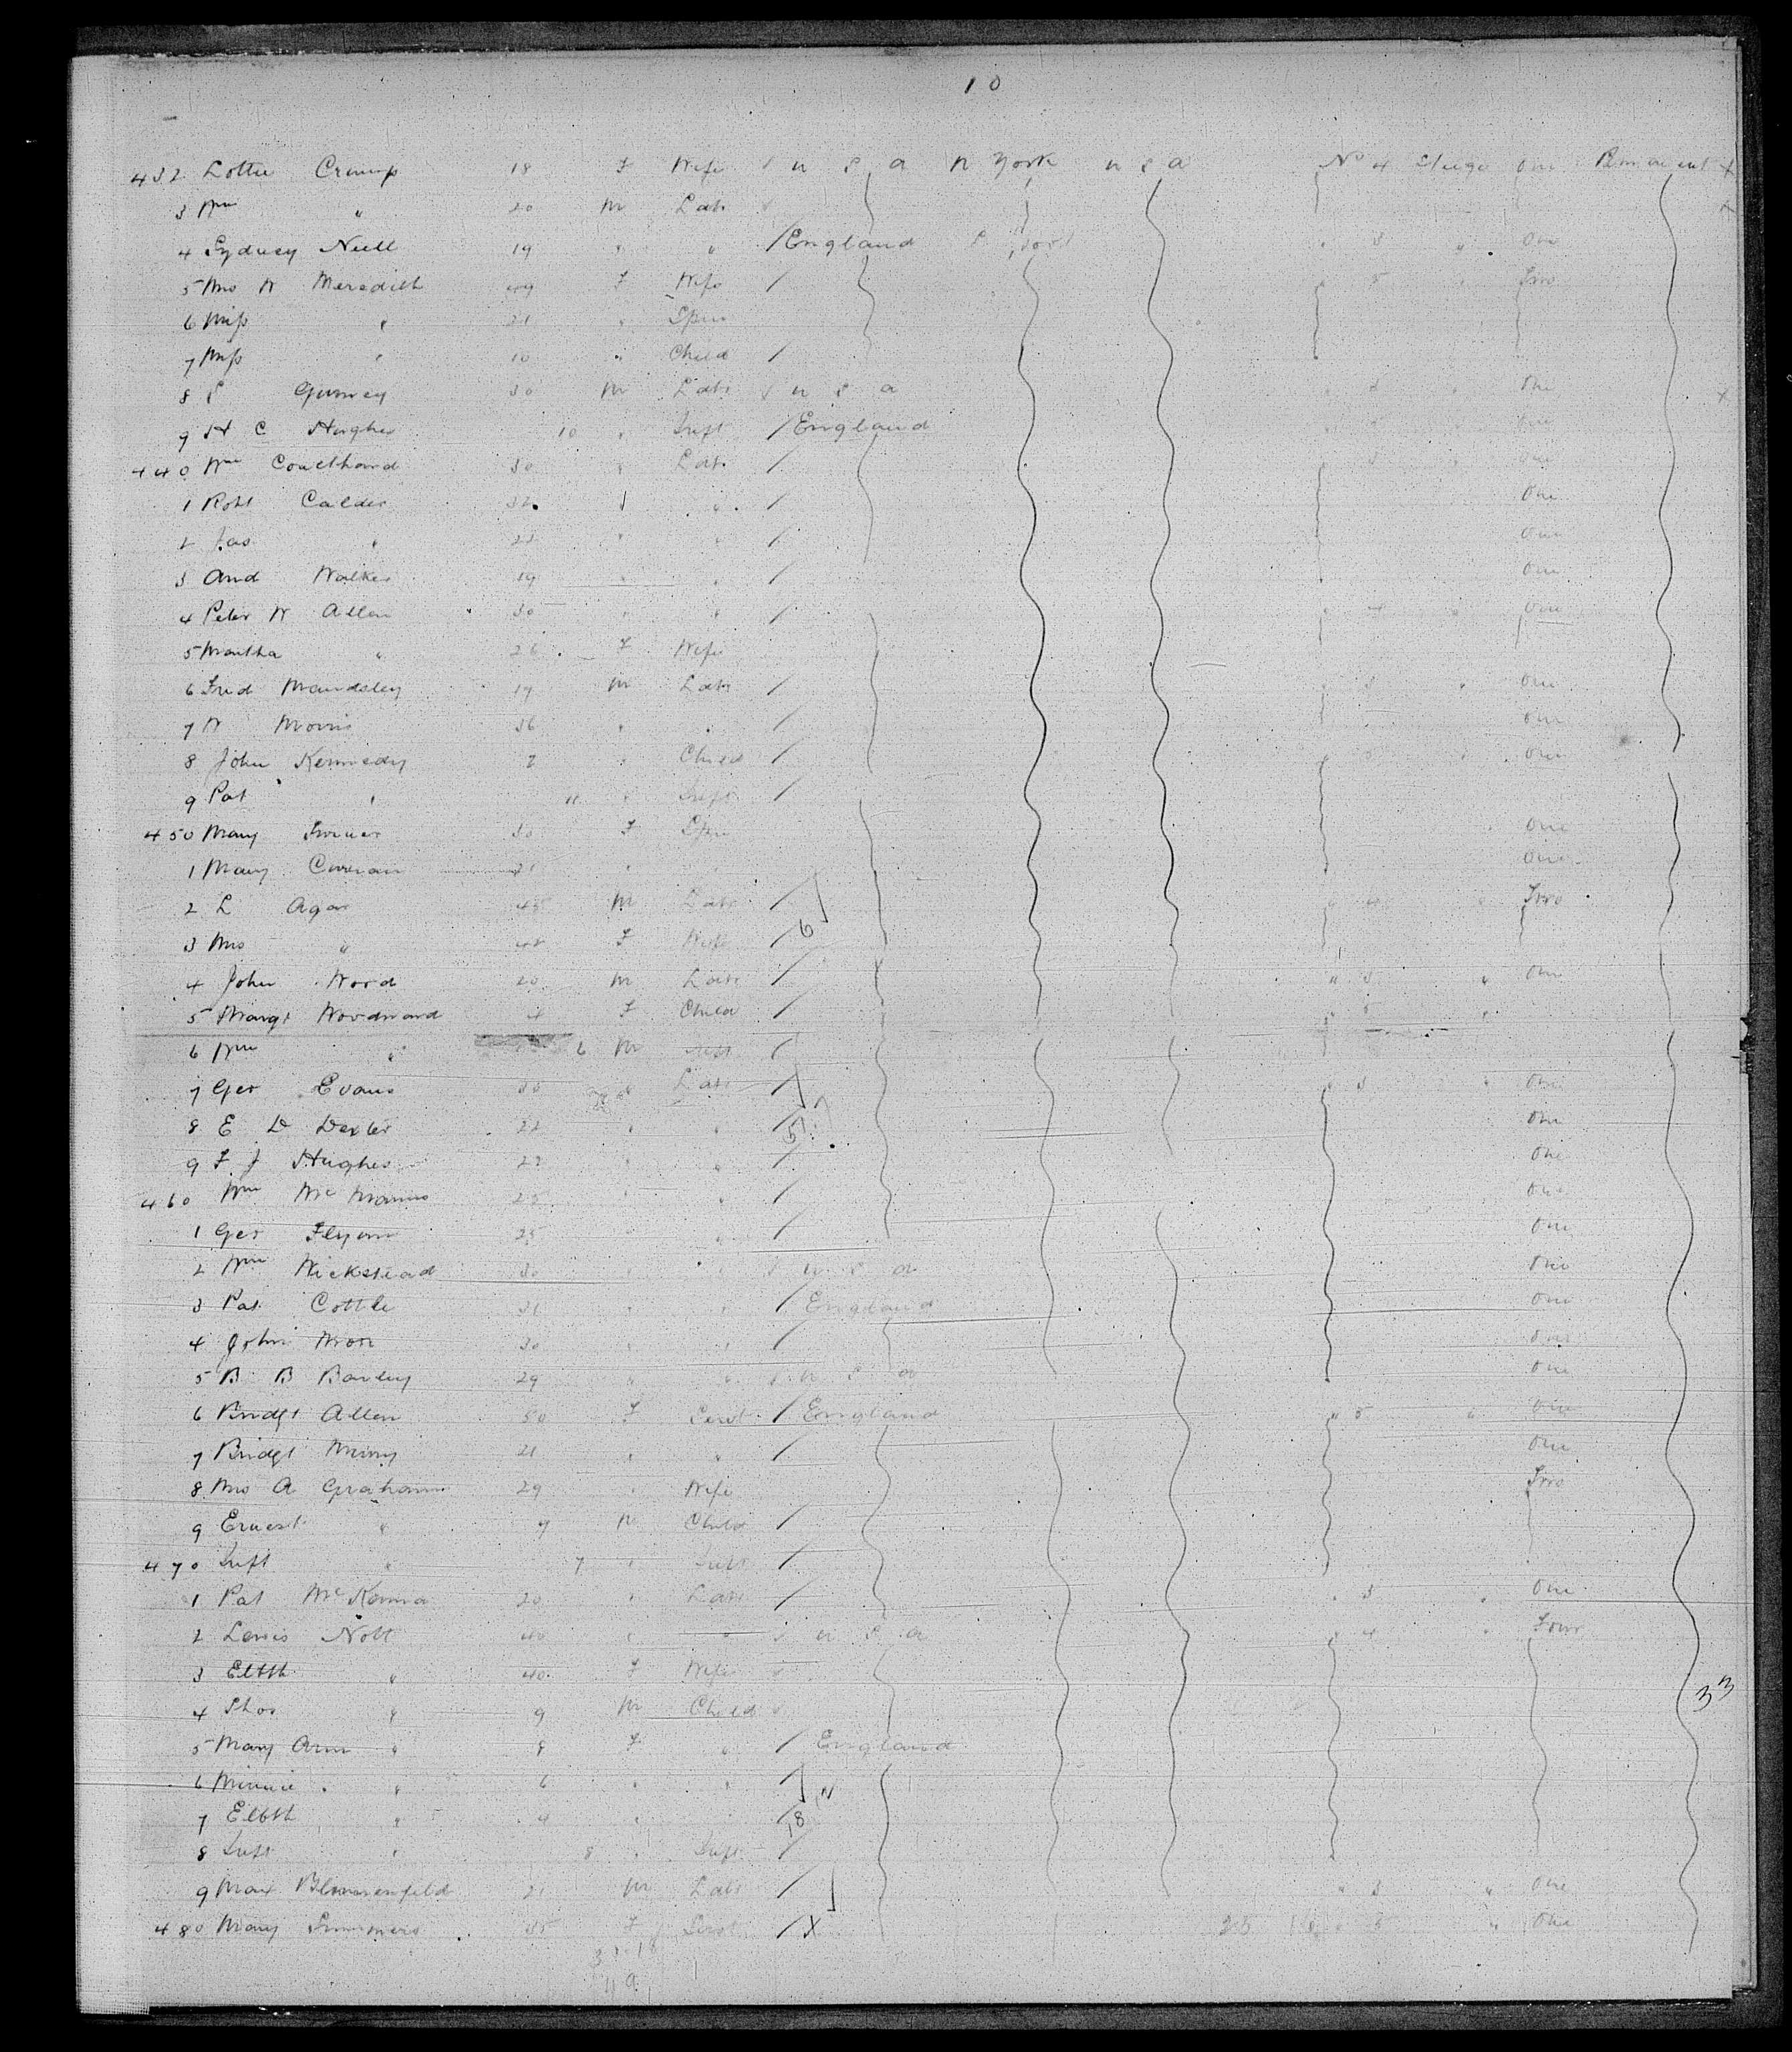 10
432 Lottie Crump 18 F Wife U S A N York U S A No 4 Stege One Permanent X
3 Wm " 20 M Labr X
4 Sydney Neill 19 " " / England " 3 " One
5 Mrs W Meredith 49 F Wife / " 5 " Two
6 Miss " 21 " Spin
7 Miss " 10 " Child /
8 S Gurney 30 M Labr U S A " 3 " One X
9 H C Hughes 10 " Inft / England " " One
440 Wm Coulthard 30 " Labr / " 3 " One
1 Robt Calder 32 " / One
2 Jas " 23 " " / One
3 And Walker 19 " " / One
4 Peter W Allen 30 " " / " 4 " One
5 Martha " 26 F Wife
6 Fred Maudsley 19 M Labr / " 3 " One
7 W Morris 36 " " / One
8 John Kennedy 7 " Child / " " One
9 Pat " 11 " Inft /
450 Mary 30 F Spin " One
1 Mary Curran 21 " " One
2 L Agar 45 M Labr / " 4 " Two
3 Mrs " 42 F Wife / 6
4 John Wood 20 M Labr / " 3 " One
5 Margt Woodward 4 F Child / " "
6 Wm " 6 M Inft /
7 Geo Evans 33 " Labr / " 3 " One
8 E D Dexter 22 " " / 5 One
9 F J Hughes 22 " " / One
460 Wm McManus 25 " " / One
1 Geo Flynn 25 " " / One
2 Wm Wickstead 30 " " U S A One
3 Pat Cottle 31 " " / England One
4 John 30 " " / One
5 B B Barley 29 " " U S A One
6 Bridgt Allen 50 F Servt / England " 5 " One
7 Bridgt 21 " " / One
8 Mrs A Graham 29 " Wife Two
9 Ernest " 9 M Child /
470 Inft " 7 " Inft /
1 Pat McKenna 20 " Labr / " 3 " One
2 Lewis Nott 40 " " U S A " 4 " Four
3 Elbth " 40 F Wife
4 Thos " 9 M Child 33
5 Mary Ann " 8 F " / England
6 Minnie " 6 " " /
7 Elbth " 4 " / 18
8 Inft " 8 " Inft /
9 Max Blumenfeld 21 M Labr / " 3 " One
480 Mary Summers 35 F Servt / X 25 5 " One